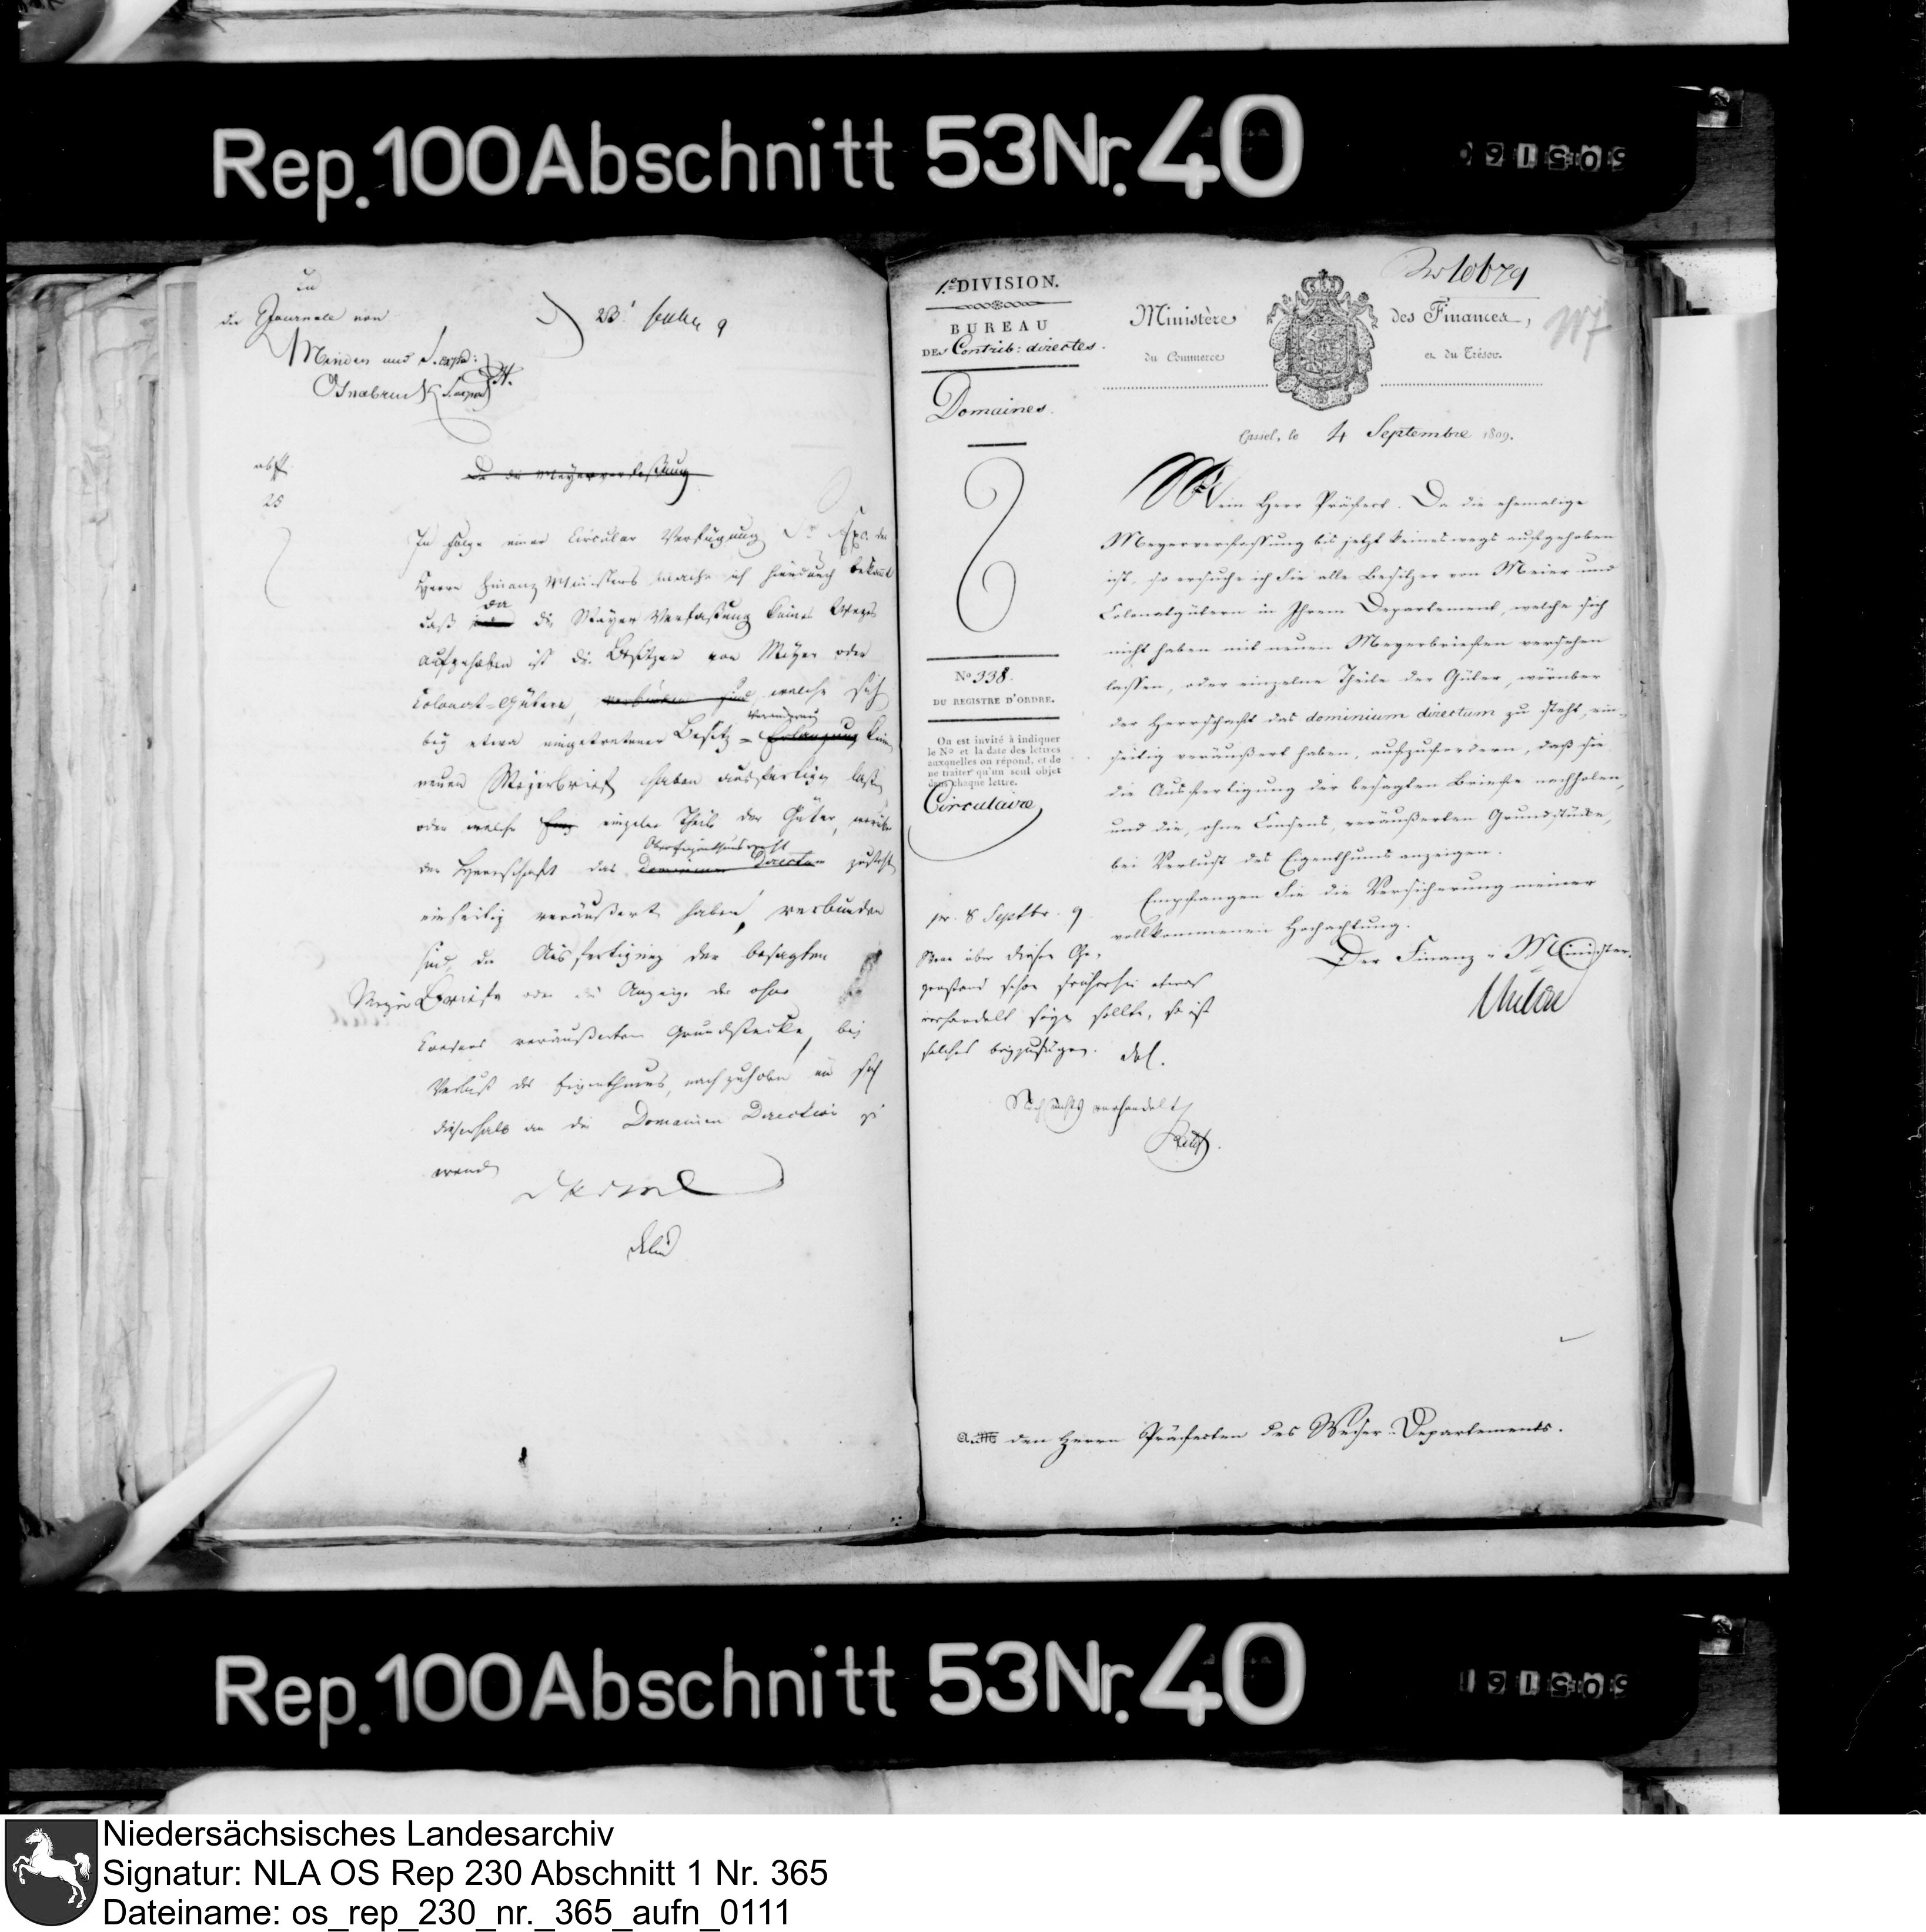 Rep. 100 Abschnitt 53 Nr. 40
In
die Journale von
Minden und
Osnabruck
23'
9
abs
25
Da die Meyerverfassung
In Folge einer Circular Verfügung Sr Exc. des
Herrn Finanz Ministers mache ich hierdurch bekannt
daß da die Meyer Verfaßung keines Weges
aufgehoben ist die Besitzer von Meyer oder
Colonat-Gütern, verbunden sind, welche sich
bey etwa eingetretener Besitz = Veränderung Erlangung kein
neuen Meyerbrief haben ausfertigen laßen
oder welche einzelne Theile der Güter, worüber
der Herrschaft das Obereigenthumsrecht Dominium Directum zusteht
einseitig veräußert haben, verbunden
sind, die Ausfertigung der besagten
Meyer Briefe oder die Anzeige der ohne
Consens veräußerten Grundstücke, bey
Verlust des Eigenthums, nachzuholen und sich
dieserhalb an die Domainen Direction zu
wenden
1.re DIVISION.
BUREAU
DES Contrib: directes.
Domaines.
No 338.
DU REGISTRE D'ORDRE.
On est invité à indiquer
le No et la date des lettres
auxquelles on répond, et de
ne traiter qu'un seul objet
dans chaque lettre.
Circulaire
pr. 8 Septbr. 9
Wenn über diesen Ge-
genstand schon früherhin etwas
verhandelt seyn sollte, so ist
solches beyzufügen.
Noch nichts verhandelt
No 10679
117
Ministère des Finances,
du Commerce et du Trésor.
Cassel, le 4 Septembre 1809.
Mein Herr Präfect. Da die ehemalige
Meyerverfassung bis jetzt keineswegs aufgehoben
ist, so ersuche ich Sie alle Besitzer von Meier und
Colonatgütern in Ihrem Departement, welche sich
nicht haben mit neuen Meyerbriefen versehen
lassen, oder einzelne Theile der Güter, worüber
der Herrschaft das dominium directum zu steht, ein-
seitig veräußert haben, aufzufordern, daß sie
die Ausfertigung der besagten Briefe nachholen,
und die, ohne Consens, veräußerten Grundstücke,
bei Verlust des Eigenthums anzeigen.
Empfangen Sie die Versicherung meiner
vollkommenen Hochachtung.
Der Finanz-Minister.
An den Herrn Präfecten des Weser-Departements.
Rep. 100 Abschnitt 53 Nr. 40
Niedersächsisches Landesarchiv
Signatur: NLA OS Rep 230 Abschnitt 1 Nr. 365
Dateiname: os_rep_230_nr._365_aufn_0111